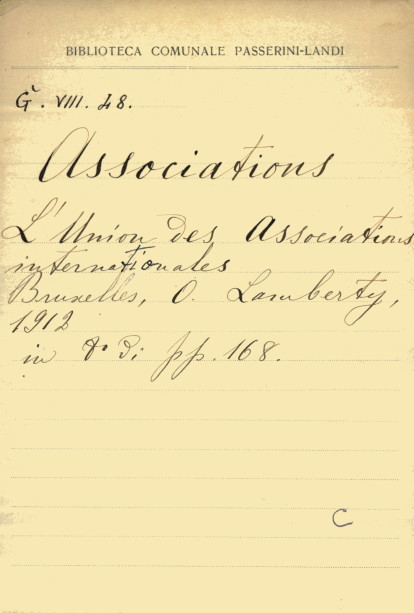 BIBLIOTECA COMUNALE PASSERINI-LANDI
G`. VIII. 48.
Associations
L'Union des Associations
internationales
Bruxelles, O. Lamberty,
1912
in 8° di pp. 168.
C